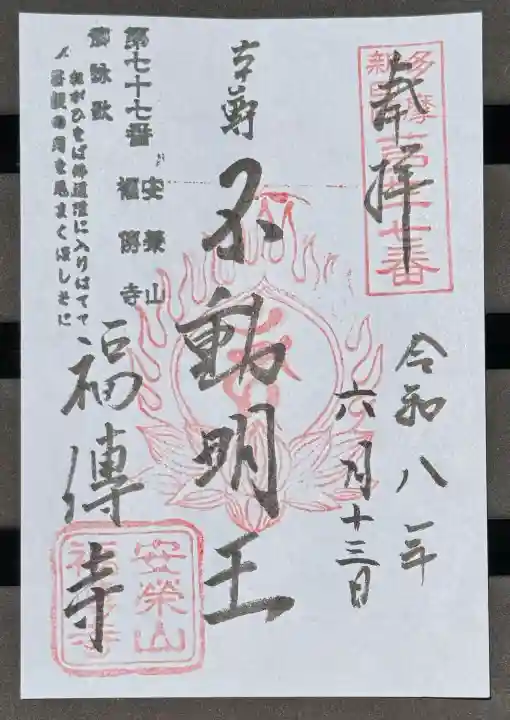 奉拝
多摩
新四国
第七十七番
令和八年
六月十三日
本尊
不動明王
第七十七番 安榮山
福傳寺
御詠歌
ねがひをば佛道塲に入りはてて
菩提の月を見まくほしさに
福傳寺
安榮山
福傳寺